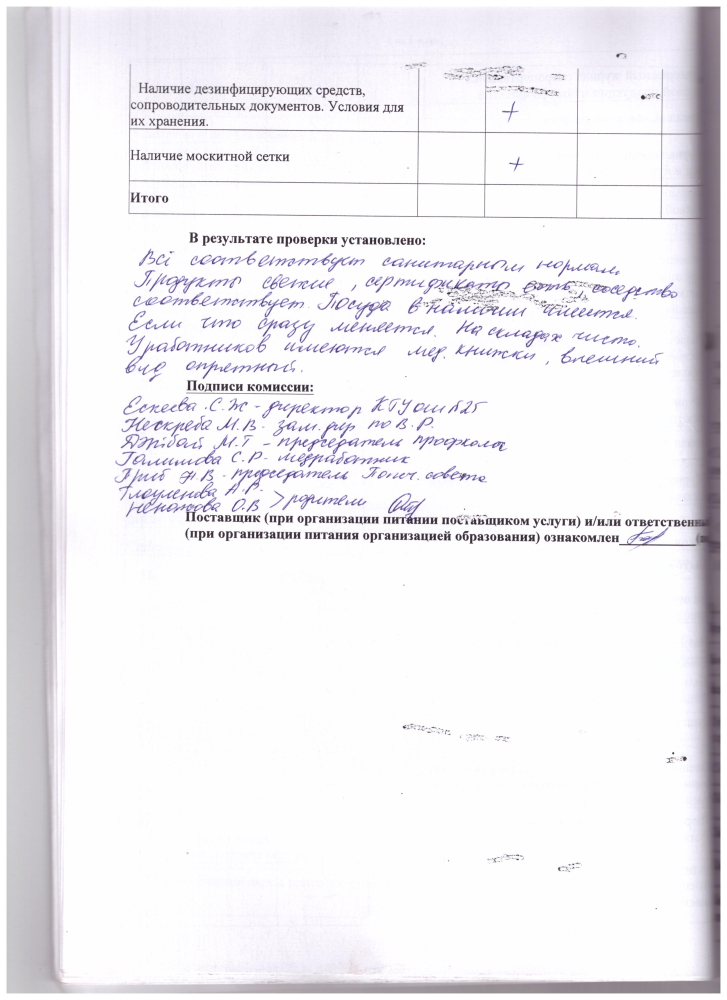 Наличие дезинфицирующих средств,
сопроводительных документов. Условия для
их хранения.
+
Наличие москитной сетки
+
Итого
В результате проверки установлено:
Всё соответствует санитарным нормам.
Продукты свежие, сертификаты есть, соседство
соответствует. Посуда в наличии имеется.
Если что сразу меняется. На складах чисто.
У работников имеются мед. книжки, внешний
вид опрятный.
Подписи комиссии:
Ескеева С.Ж - директор КГУ ОШ №25
Нескреба М.В. зам. дир по В.Р.
М.Т - председатель профкома
Галимова С.Р - медработник
Гриб А.В. - председатель Попеч. совета
А.Р.
О.В > родители
Поставщик (при организации питании поставщиком услуги) и/или ответственны
(при организации питания организацией образования) ознакомлен